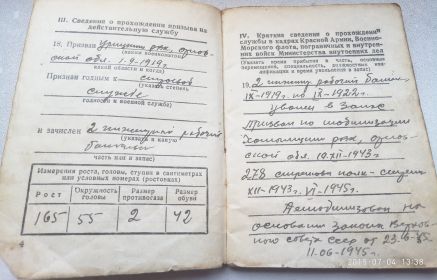 III. Сведения о прохождении призыва на
действительную службу
18. Призван Урицким рвк, орлов-
(время военкоматом,
ской обл. 1.9-1919г.
какой области и когда)
Признан годным к строевой
(указать степень
службе
годности к военной службе)
и зачислен 2 инженерный рабочий
(указать в какую
батальон
часть или запас)
Измерения роста, головы, ступни в сантиметрах
или условных номерах (ростовках)
Рост
Окружность
головы
Размер
противогаза
Размер
обуви
165 55 2 42
4
IV. Краткие сведения о прохождении
службы в кадрах Красной Армии, Военно-
Морского флота, пограничных и внутрен-
них войск Министерства внутренних дел
(Указать время прибытия в часть, основные
перемещения, специальность, должностных
и время увольнения в запас)
19. 2 инженер рабочий батал.
IX-1919г. по IX-1922г.
уволен в Запас
Призван по мобилизации
рвк, орлов-
ской обл. 10.XII-1943г.
278 стрелковый полк-
XII-1943г. VI-1945г.
Демобилизован на
основании Закона Верхов-
ного совета СССР от 23.
11-06-1945г.
2015-07-04 13:38